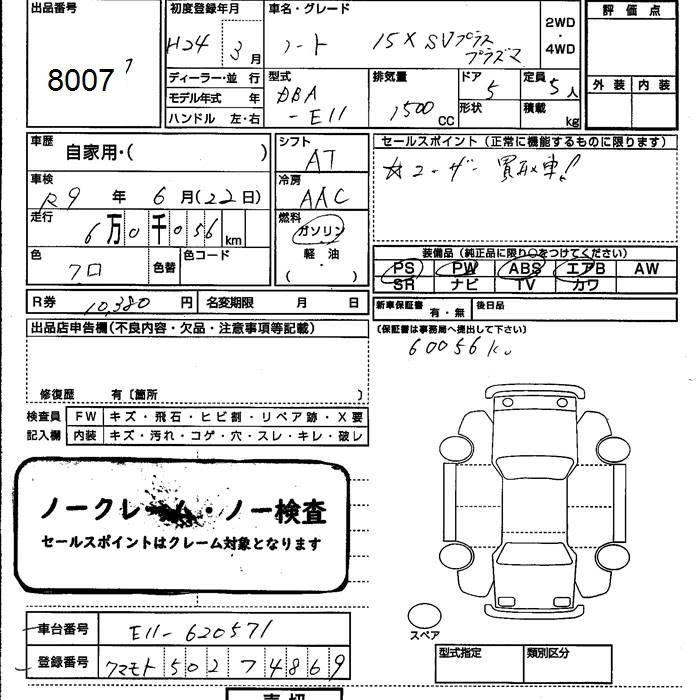 出品番号
8007
初度登録年月
H24 3月
車名・グレード
ノート 15X SVプラス
プラズマ
2WD
・
4WD
評価点
外装 内装
ディーラー・並 行
モデル年式 年
ハンドル 左・右
型式
DBA
-E11
排気量
1500
CC
ドア
5
定員
5人
形状
積載
kg
車歴
自家用・( )
シフト
AT
セールスポイント(正常に機能するものに限ります)
☆ユーザー買取車!
車検
R9 年 6月(22日)
冷房
AAC
走行
6万0千056km
燃料
ガソリン
軽油
( )
色
クロ
色替
色コード
装備品(純正品に限り○をつけてください)
PS PW ABS エアB AW
SR ナビ TV カワ
R券 10,380円
名変期限 月 日
新車保証書
有・無
後日品
(保証書は事務局へ提出して下さい)
60056K
出品店申告欄(不良内容・欠品・注意事項等記載)
修復歴 有〔箇所 〕
検査員
記入欄
FW キズ・飛石・ヒビ割・リペア跡・X要
内装 キズ・汚れ・コゲ・穴・スレ・キレ・破レ
ノークレーム・ノー検査
セールスポイントはクレーム対象となります
スペア
車台番号 E11-620571
登録番号 クマモト 502 ワ 4869
型式指定
類別区分